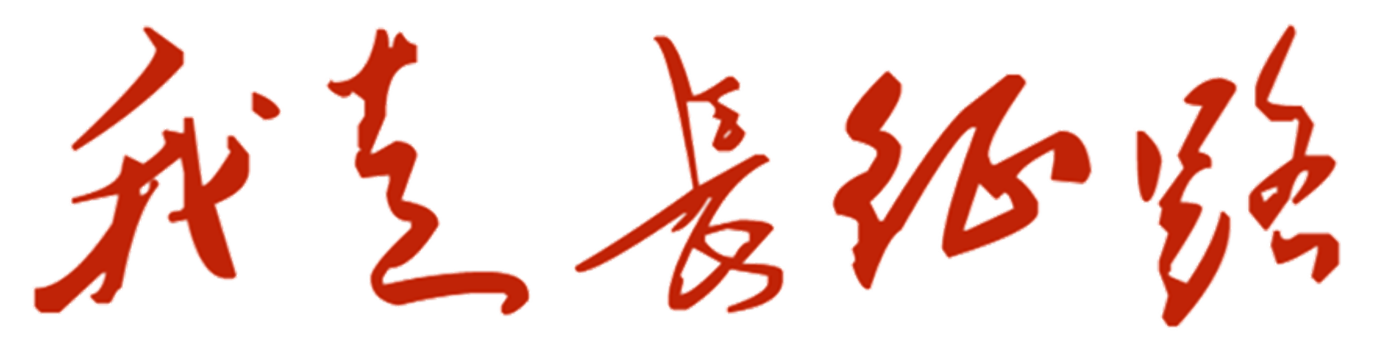 我走長征路